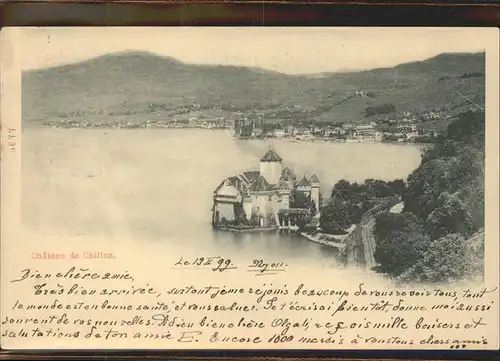 1130
Château de Chillon.
Le 13 II 99 Nyon
Bien chère amie,
Très bien arrivée, surtout je me réjouis beaucoup de vous revoir tous, tout
le monde est en bonne santé, et vous saluez. Je t'écrirai bientôt, donne moi aussi
souvent de vos nouvelles. Adieu bien chère Olga, reçois mille baisers et
salutations de ton amie E. Encore 1000 mercis à vous tous chers amis...